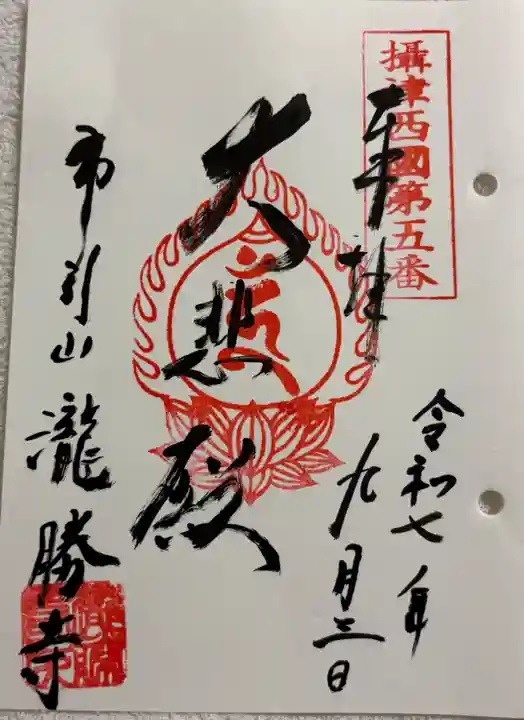 攝津西國第五番
奉拝
令和七年
九月三日
大悲殿
布引山 瀧勝寺